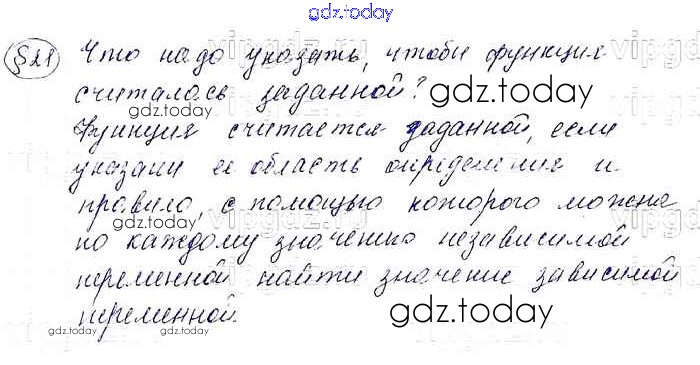 gdz.today
§21 Что надо указать, чтобы функция
считалась заданной?
gdz.today
Функция считается заданной, если
указаны ее область определения и
правило, с помощью которого можно
по каждому значению независимой
переменной найти значение зависимой
переменной.
gdz.today
gdz.today
gdz.today